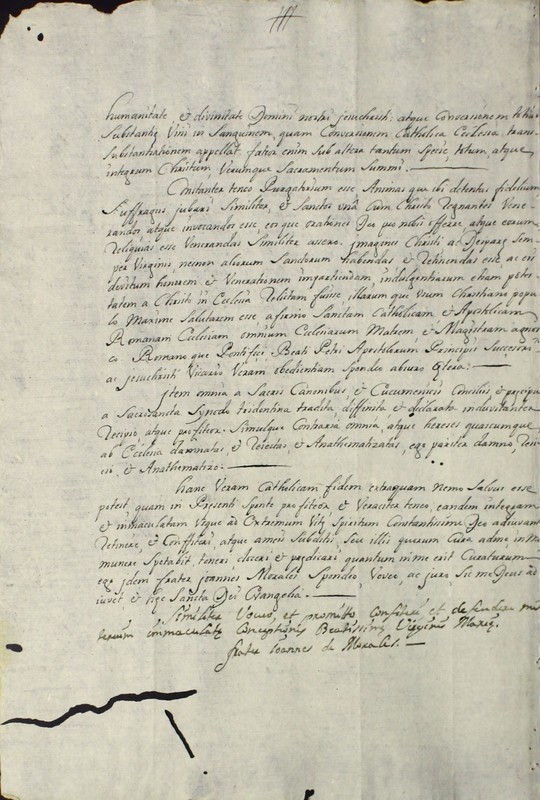 humanitate, & divinitate Domini nostri jesuchristi: atque Conversionem totius
Substantię Vini in Sanguinem, quam Conversionem Catholica Ecclesia trans-
substantiationem appellat. fateor enim sub altera tantum specie, totum, atque
integrum Christum, Verumque Sacramentum Summi.
Constanter teneo Purgatorium esse Animas que ibi detentas fidelium
Suffragijs, jubari Similiter, & Sanctos vnà Cum Christo Regnantes Vene-
randos atque invocandos esse, eos que orationes Deo pro nobis offerre, atque eorum
Reliquias esse Venerandas Similiter assero. jmagines Christi ac Deiparę Sem-
per Virginis, necnon aliorum Sanctorum habendas & Retinendas esse, ac eis
devitum honorem, & Venerationem impartiendam, indulgentiarum etiam potes-
tatem a Christo in Ecclesia Relictam fuisse, illarum que Vsum Christiano popu-
lo Maxime Salutarem esse afirmo Sanctam Catholicam & Apostolicam
Romanam Ecclesiam omnium Ecclesiarum Matrem, & Magistram agnos-
co Romano que Pontifici, Beati Petri Apostolorum Principis Successori
ac jesuchristi Vicario Veram obedientiam spondeo ac juro
jtem omnia a Sacris Canonibus, & Eucumenicis Concilijs & precipue
a Sacrosancta Synodo tridentina tradita, diffinita & declarata induvitanter
Recipio atque profiteor. Simulque Contraria omnia, atque hereses quascumque,
ab Ecclesia damnatas, & Reiectas, & Anathematizatas, ego pariter damno, Rei-
cio, & Anathematizo.
hanc Veram Catholicam fidem extraquam Nemo Salvus esse
potest, quam in Presenti Sponte profiteor, & Veraciter teneo, eandem integram
& inmaculatam Vsque ad Extremum Vitę Spiritum Constantissime Deo adiuvante
Retinere, & Confiteri, atque ameis Subditis seu illis quorum Cura adme in Mu-
munere Spetabit, teneri, doceri & predicari quantum in me erit Curaturum
ego jdem frater joannes Morales Spondeo, Voveo, ac juro Sic me Deus ad-
iuvet & hęc Sancta Dei Evangelia.
Similiter Voveo, et promitto Confiteri et defendere mis-
terium immaculatę Conceptionis Beatissimę Virginis Marię.
frater Ioannes de Morales.